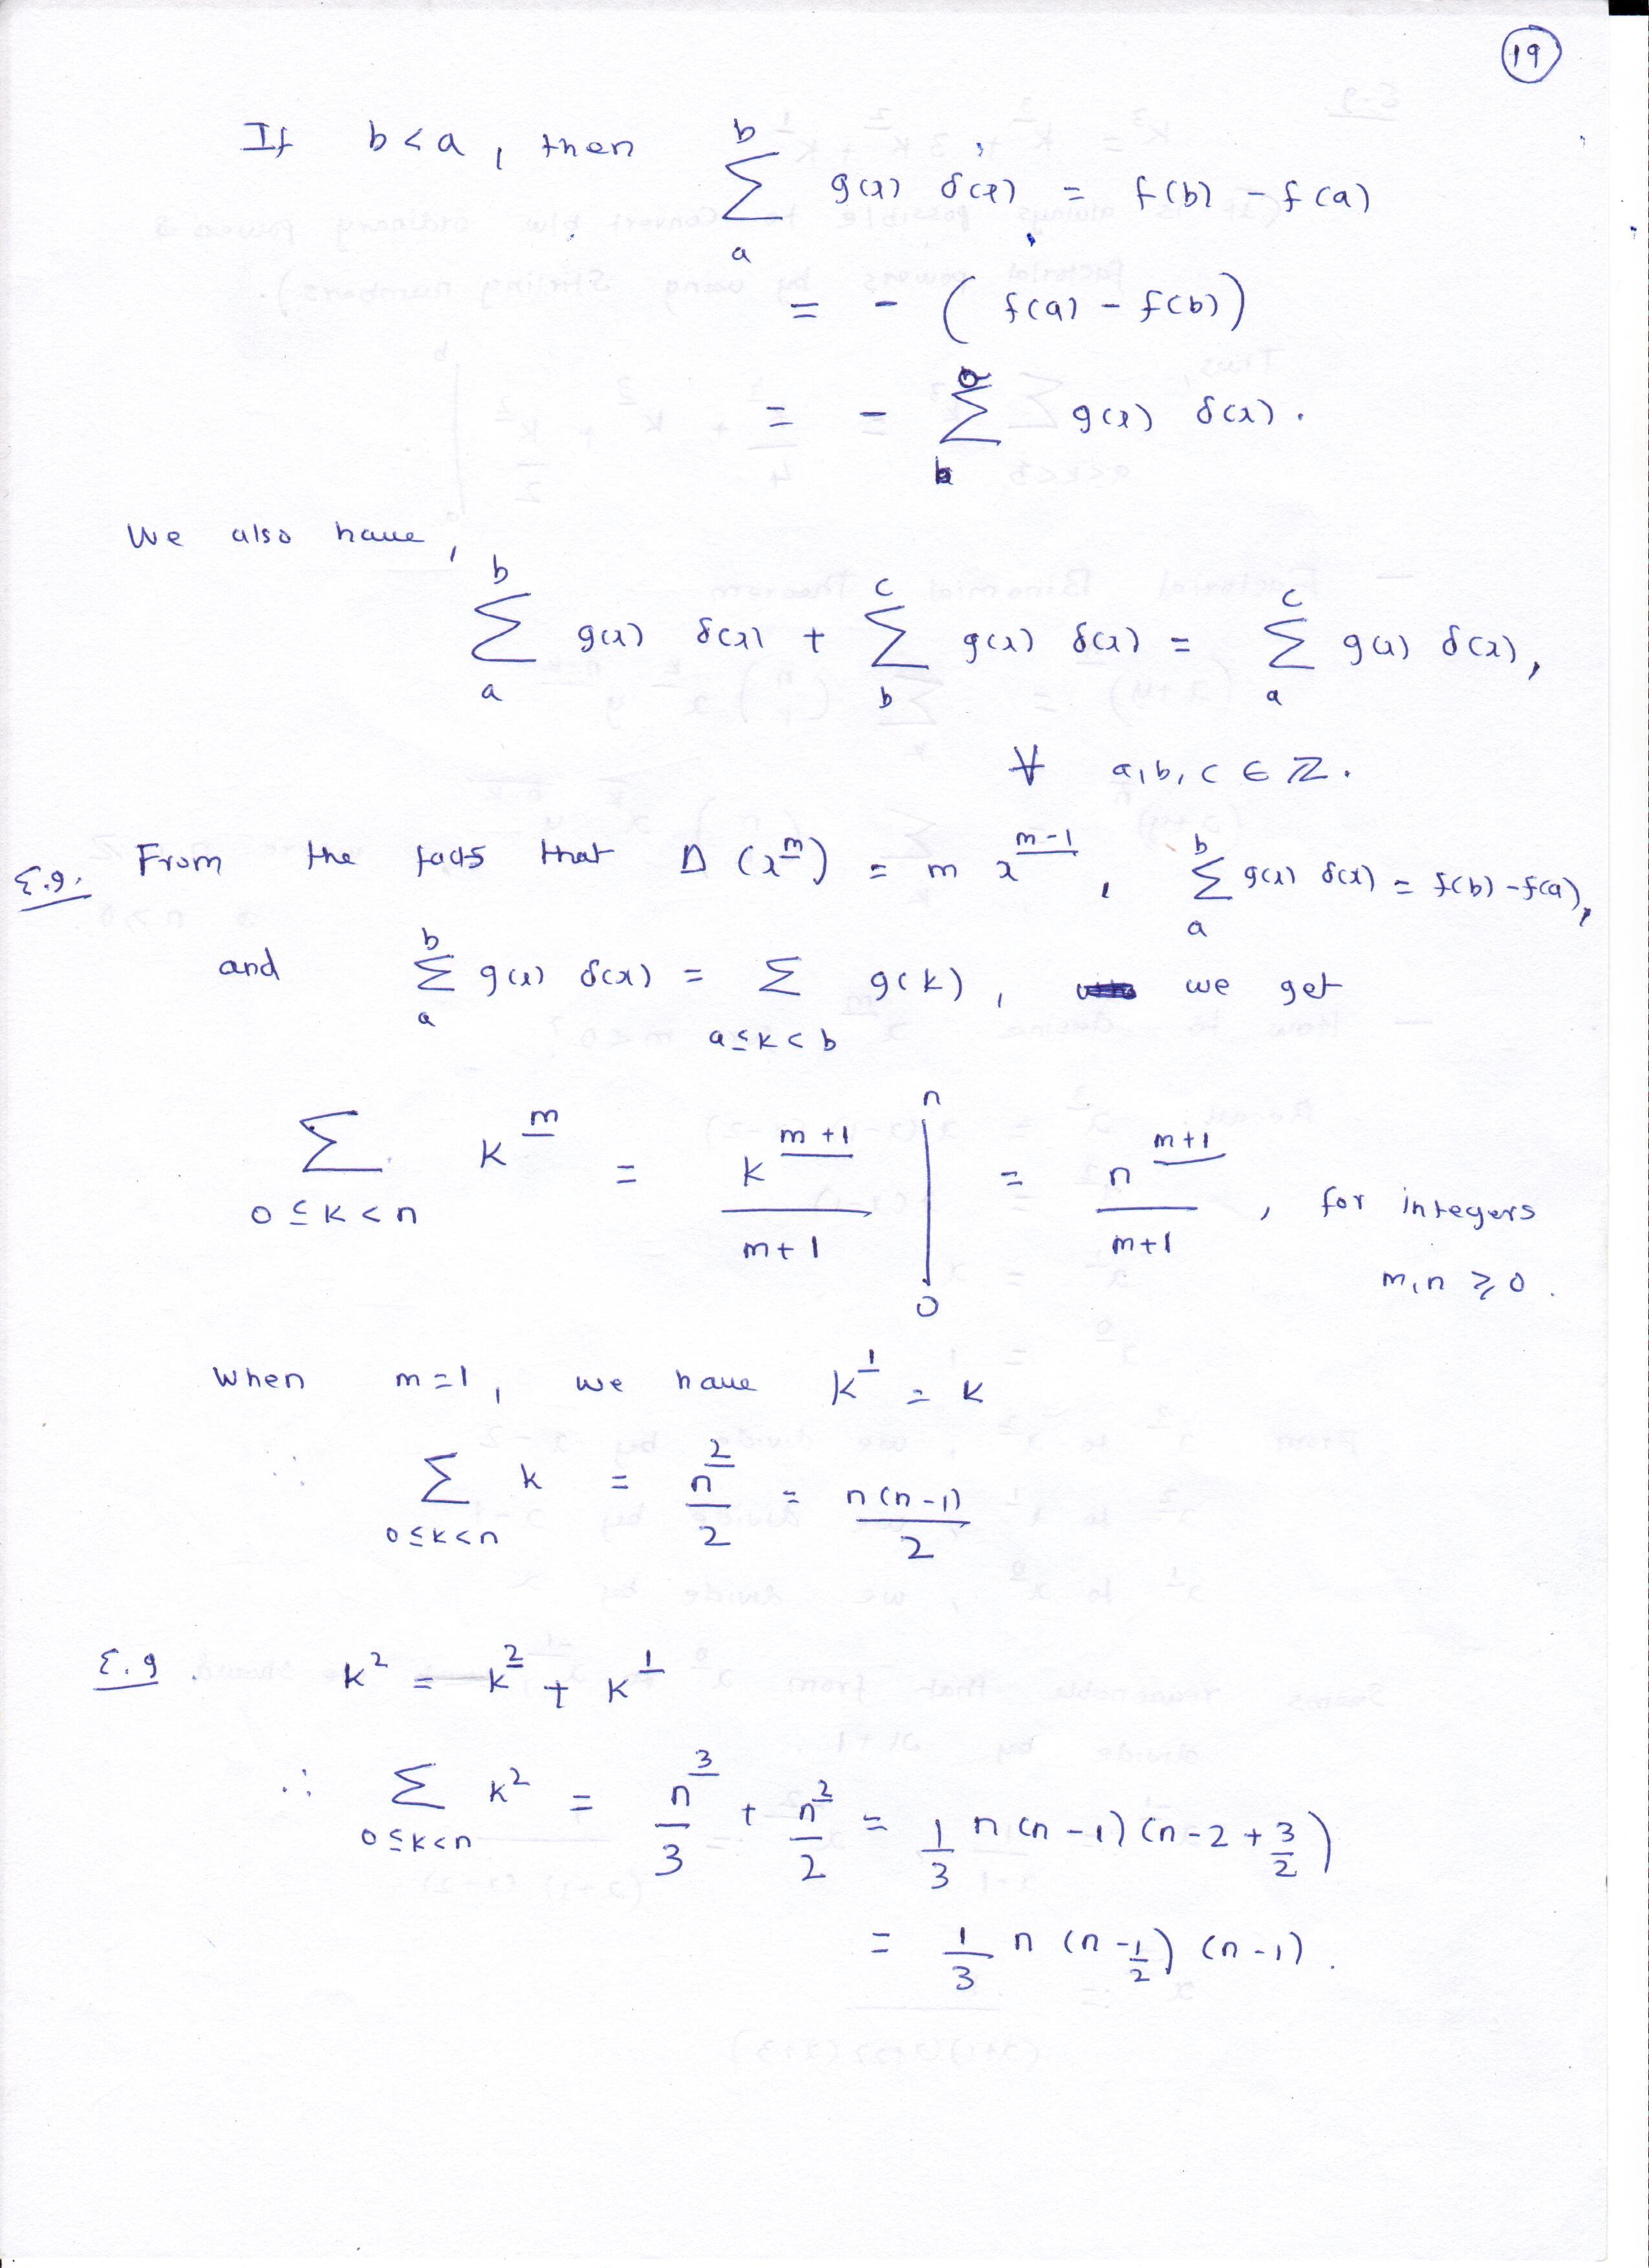 19
If b<a, then \sum_{a}^{b} g(x) δ(x) = f(b) - f(a)
= - ( f(a) - f(b) )
= - \sum_{b}^{a} g(x) δ(x).
We also have,
\sum_{a}^{b} g(x) δ(x) + \sum_{b}^{c} g(x) δ(x) = \sum_{a}^{c} g(x) δ(x),
∀ a, b, c ∈ ℤ.
E.g. From the facts that Δ (x^{\underline{m}}) = m x^{\underline{m-1}}, \sum_{a}^{b} g(x) δ(x) = f(b) - f(a),
and \sum_{a}^{b} g(x) δ(x) = \sum_{a≤k<b} g(k), we get
\sum_{0≤k<n} k^{\underline{m}} = \frac{k^{\underline{m+1}}}{m+1} |_{0}^{n} = \frac{n^{\underline{m+1}}}{m+1}, for integers
m, n ≥ 0.
When m=1, we have k^{\underline{1}} = k
∴ \sum_{0≤k<n} k = \frac{n^{\underline{2}}}{2} = \frac{n(n-1)}{2}
E.g. k^2 = k^{\underline{2}} + k^{\underline{1}}
∴ \sum_{0≤k<n} k^2 = \frac{n^{\underline{3}}}{3} + \frac{n^{\underline{2}}}{2} = \frac{1}{3} n(n-1)(n-2+\frac{3}{2})
= \frac{1}{3} n (n-\frac{1}{2}) (n-1).